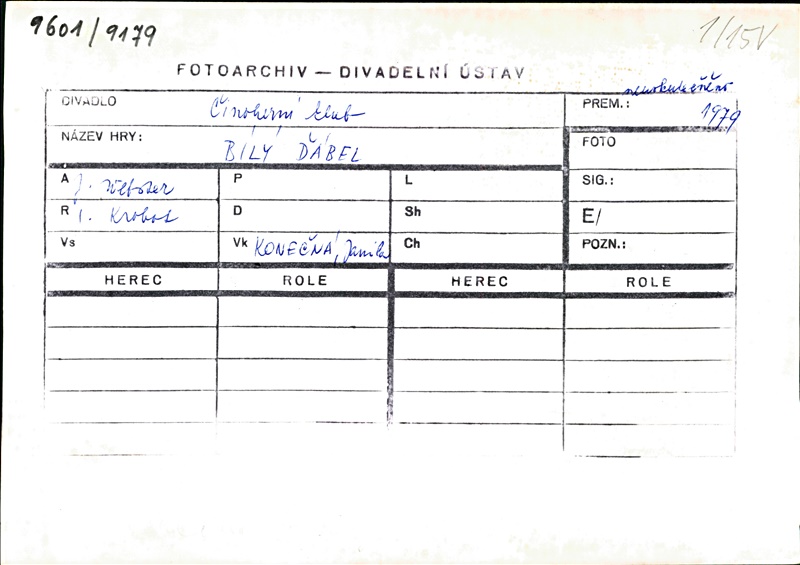 9601/9179
1/15V
FOTOARCHIV — DIVADELNÍ ÚSTAV
DIVADLO Činoherní klub
PREM.: neuskutečněno 1979
NÁZEV HRY: BÍLÝ ĎÁBEL
FOTO
A J. Webster P L SIG.:
R I. Krobot D Sh E/
Vs Vk KONEČNÁ, Jamila Ch POZN.:
HEREC ROLE HEREC ROLE